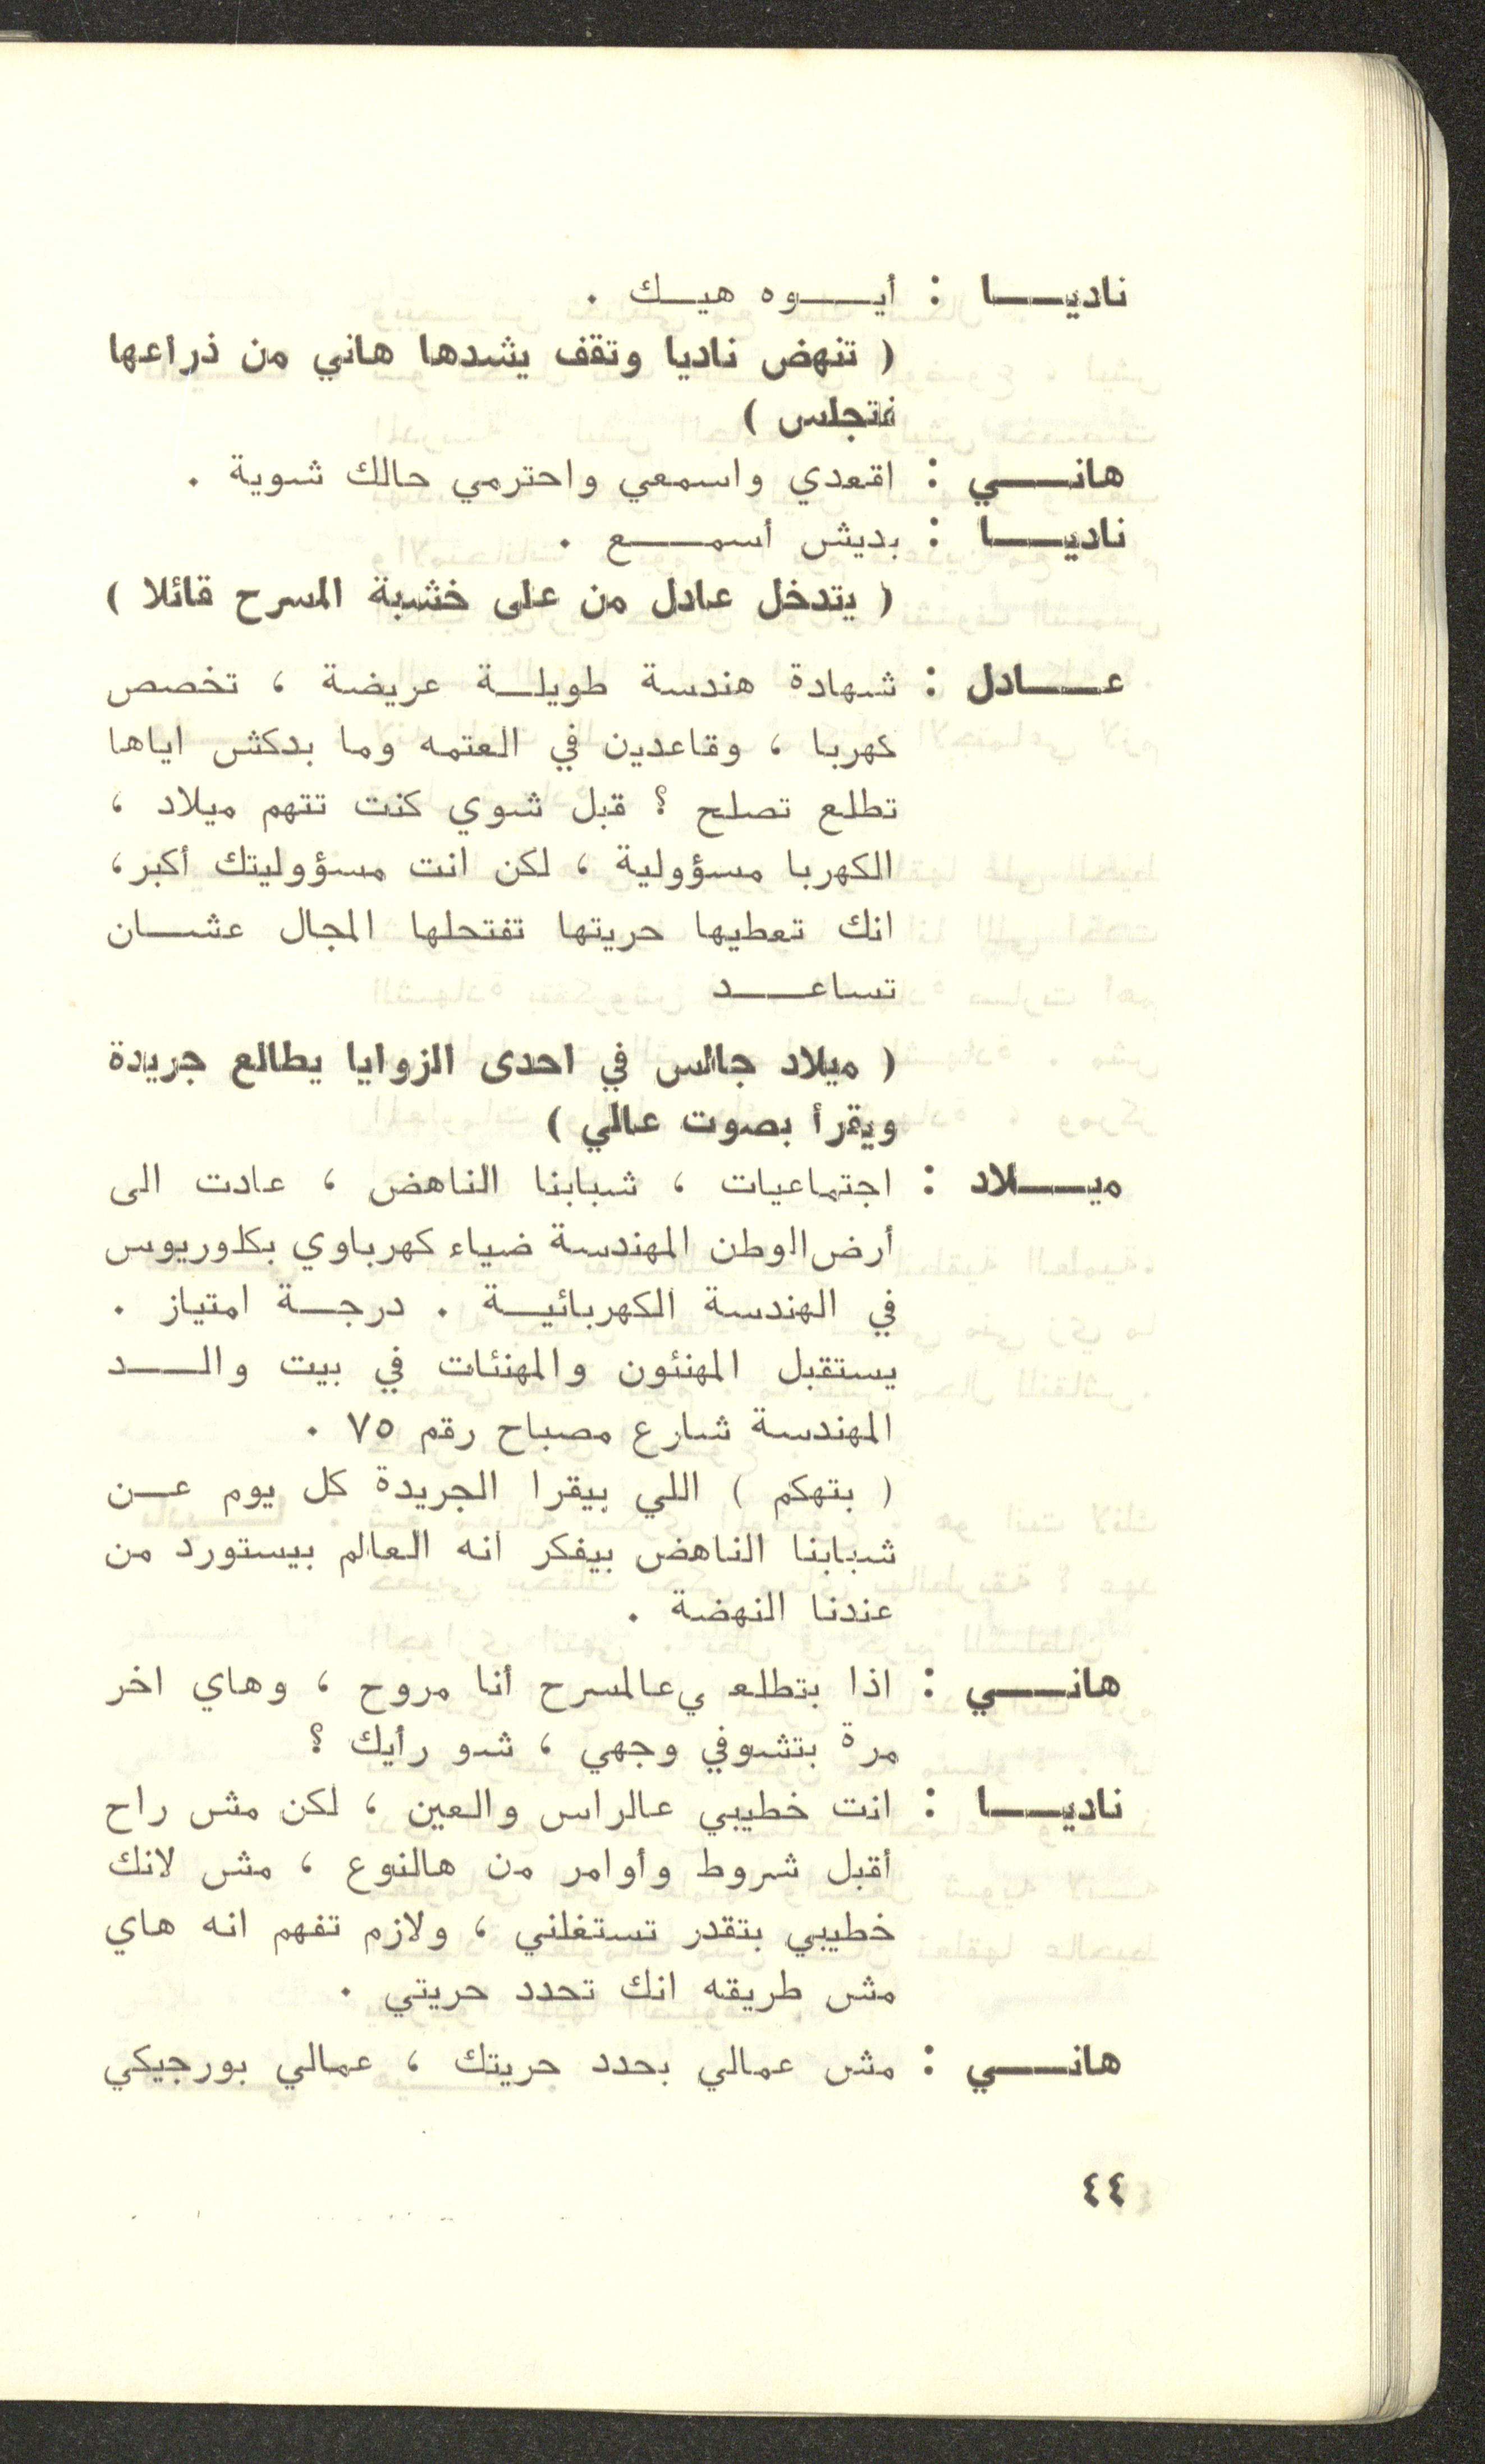 ناديا : أيوه هيك .
( تنهض ناديا وتقف يشدها هاني من ذراعها
فتجلس )
هاني : اقعدي واسمعي واحترمي حالك شوية .
ناديا : بديش أسمع .
( يتدخل عادل من على خشبة المسرح قائلا )
عادل : شهادة هندسة طويلة عريضة ، تخصص
كهربا ، وقاعدين في العتمه وما بدكش اياها
تطلع تصلح ؟ قبل شوي كنت تتهم ميلاد ،
الكهربا مسؤولية ، لكن انت مسؤوليتك أكبر،
انك تعطيها حريتها تفتحلها المجال عشان
تساعد
( ميلاد جالس في احدى الزوايا يطالع جريدة
ويقرأ بصوت عالي )
ميلاد : اجتماعيات ، شبابنا الناهض ، عادت الى
أرض الوطن المهندسة ضياء كهرباوي بكلوريوس
في الهندسة الكهربائية . درجة امتياز .
يستقبل المهنئون والمهنئات في بيت والد
المهندسة شارع مصباح رقم ٧٥ .
( بتهكم ) اللي بيقرا الجريدة كل يوم عن
شبابنا الناهض بيفكر انه العالم بيستورد من
عندنا النهضة .
هاني : اذا بتطلعي عالمسرح أنا مروح ، وهاي اخر
مرة بتشوفي وجهي ، شو رأيك ؟
ناديا : انت خطيبي عالراس والعين ، لكن مش راح
أقبل شروط وأوامر من هالنوع ، مش لانك
خطيبي بتقدر تستغلني ، ولازم تفهم انه هاي
مش طريقه انك تحدد حريتي .
هاني : مش عمالي بحدد حريتك ، عمالي بورجيكي
٤٤